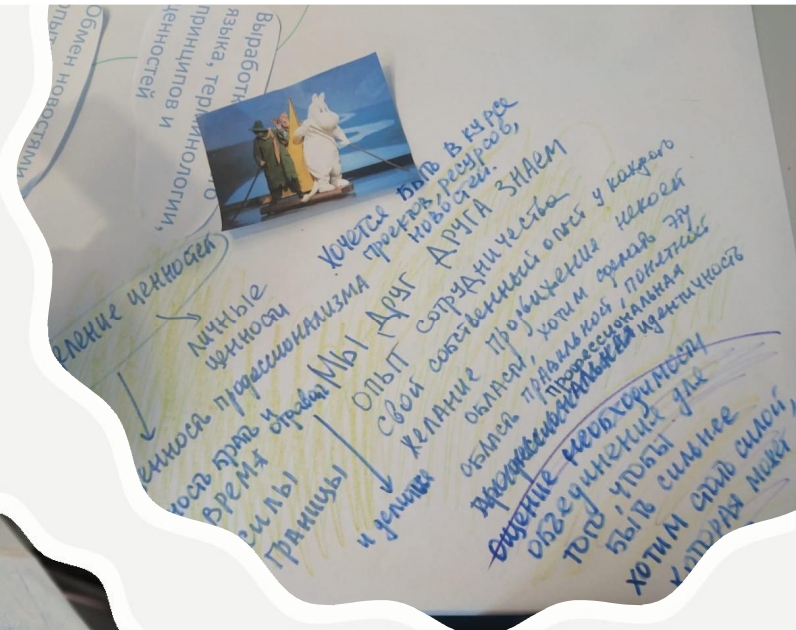 Обмен новостями
опыт
Выработ
языка, терминологии,
принципов и
ценностей
Хочется быть в курсе
проектов, ресурсов,
новостей.
еление ценностей
личные
ценности
енность профессионализма
ность брать и отдавать
время
силы
границы
и делимся
Мы друг друга знаем
опыт сотрудничества
свой собственный опыт у каждого
желание продвижения некоей
области, хотим сделать эту
область правильной, понятной
профессиональная идентичность
ощущение необходимости
объединения для
того, чтобы
быть сильнее
хотим стать силой,
которая может